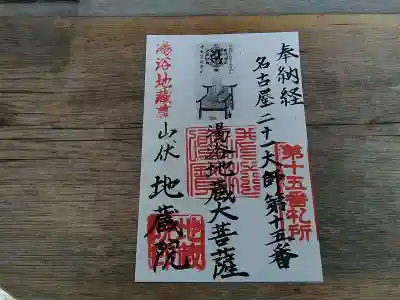 奉納経
名古屋二十一大師第十五番
第十五番札所
湯浴地蔵大菩薩
湯浴地蔵尊
山伏 地蔵院